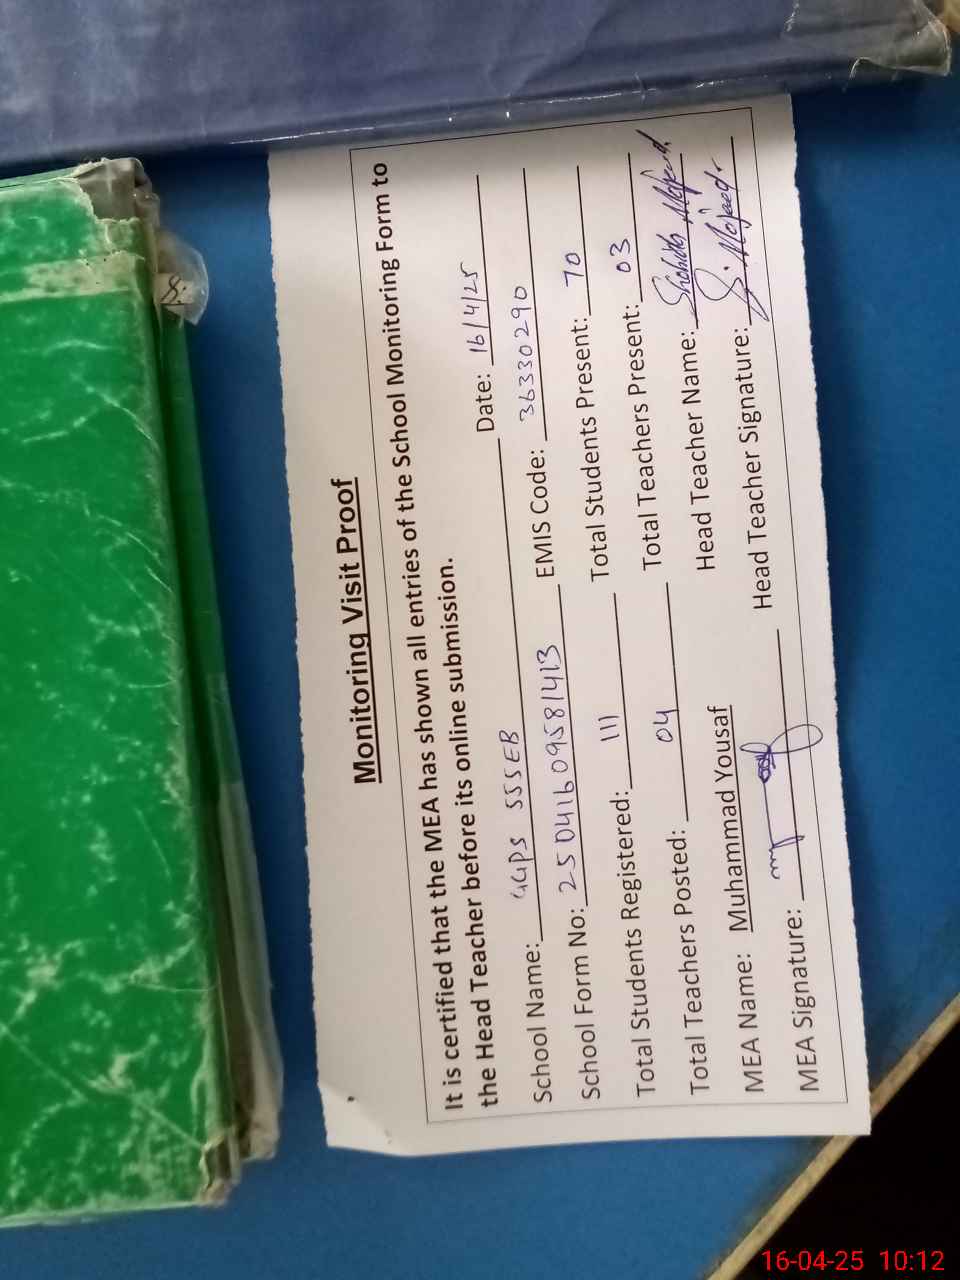 Monitoring Visit Proof
It is certified that the MEA has shown all entries of the School Monitoring Form to
the Head Teacher before its online submission.
School Name: GGPS 555EB Date: 16/4/25
School Form No: 25041609581413 EMIS Code: 36330290
Total Students Registered: 111 Total Students Present: 70
Total Teachers Posted: 04 Total Teachers Present: 03
MEA Name: Muhammad Yousaf Head Teacher Name: Majeed
MEA Signature: Head Teacher Signature: S. Majeed.
16-04-25 10:12